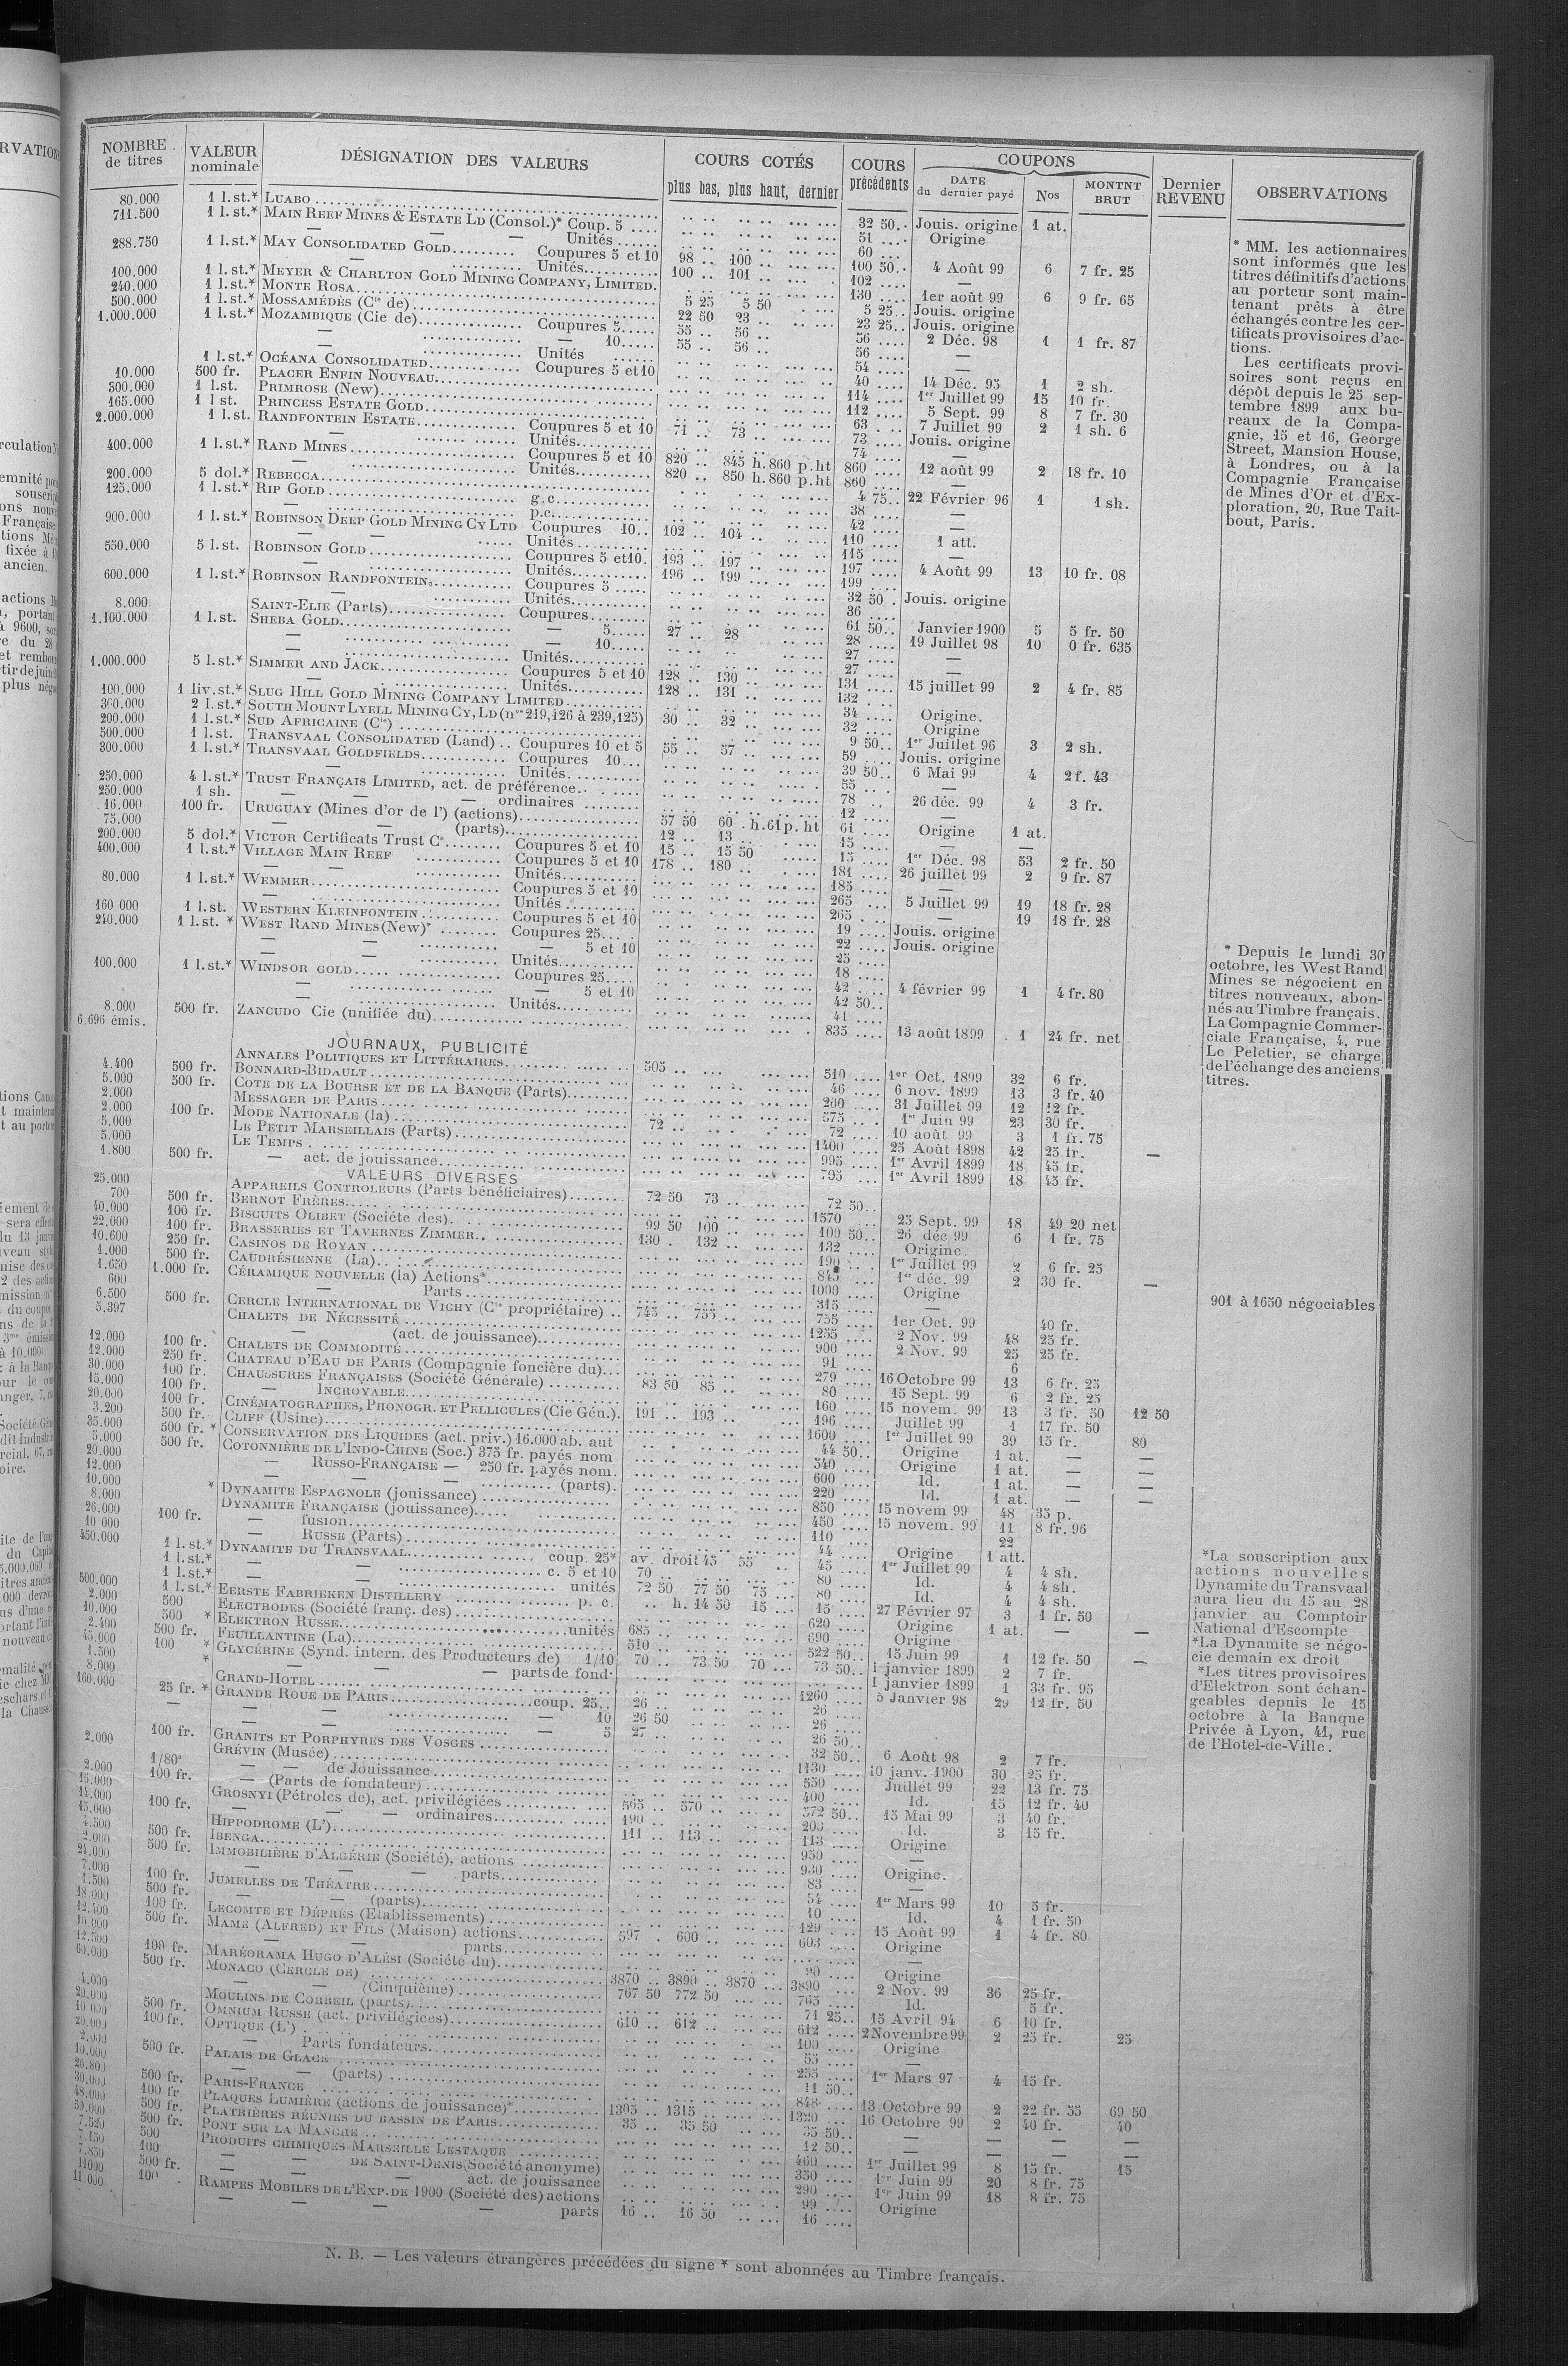 NOMBRE de titres | VALEUR nominale | DÉSIGNATION DES VALEURS | COURS COTÉS plus bas, plus haut, dernier | COURS précédents | COUPONS DATE du dernier payé | Nos | MONTNT BRUT | Dernier REVENU | OBSERVATIONS
80.000 1 l.st.* LUABO 32 50 Jouis. origine 1 at.
711.500 1 l.st.* MAIN REEF MINES & ESTATE LD (Consol.)* Coup. 5 51 Origine
— — — Unités 60
288.750 1 l.st.* MAY CONSOLIDATED GOLD Coupures 5 et 10 98 100 100 50 4 Août 99 6 7 fr. 25
— Unités 100 101 102 —
100.000 1 l.st.* MEYER & CHARLTON GOLD MINING COMPANY, LIMITED. 130 1er août 99 6 9 fr. 65
240.000 1 l.st.* MONTE ROSA 5 25 5 50 5 25 Jouis. origine
500.000 1 l.st.* MOSSAMÉDÈS (Cie de) 22 50 23 23 25 Jouis. origine
1.000.000 1 l.st.* MOZAMBIQUE (Cie de) Coupures 5 55 56 56 2 Déc. 98 1 1 fr. 87
— — 10 55 56 56 —
— Unités 54 —
1 l.st.* OCÉANA CONSOLIDATED Coupures 5 et 10 40 14 Déc. 95 1 2 sh.
10.000 500 fr. PLACER ENFIN NOUVEAU 114 1er Juillet 99 15 10 fr.
300.000 1 l.st. PRIMROSE (New) 112 5 Sept. 99 8 7 fr. 30
165.000 1 l st. PRINCESS ESTATE GOLD 63 7 Juillet 99 2 1 sh. 6
2.000.000 1 l.st. RANDFONTEIN ESTATE Coupures 5 et 10 71 73 73 Jouis. origine
— Unités 74 —
400.000 1 l.st.* RAND MINES Coupures 5 et 10 820 845 h. 860 p. ht 860 12 août 99 2 18 fr. 10
— Unités 820 850 h. 860 p. ht 860 —
200.000 5 dol.* REBECCA 4 75 22 Février 96 1 1 sh.
125.000 1 l.st.* RIP GOLD g.c. 38 —
— p.c. 42 —
900.000 1 l.st.* ROBINSON DEEP GOLD MINING CY LTD Coupures 10 102 104 110 1 att.
— — Unités 115 —
550.000 5 l.st. ROBINSON GOLD Coupures 5 et 10 193 197 197 4 Août 99 13 10 fr. 08
— Unités 196 199 199
600.000 1 l.st.* ROBINSON RANDFONTEIN Coupures 5 32 50 Jouis. origine
— Unités 36
8.000 SAINT-ELIE (Parts) Coupures 61 50 Janvier 1900 5 5 fr. 50
1.100.000 1 l.st. SHEBA GOLD — 5 27 28 28 19 Juillet 98 10 0 fr. 635
— — 10 27 —
— Unités 27 —
1.000.000 5 l.st.* SIMMER AND JACK Coupures 5 et 10 128 130 131 15 juillet 99 2 4 fr. 85
— Unités 128 131 132
100.000 1 liv.st.* SLUG HILL GOLD MINING COMPANY LIMITED 34 Origine.
300.000 2 l.st.* SOUTH MOUNT LYELL MINING CY, LD (nos 219,126 à 239,125) 30 32 32 Origine
200.000 1 l.st.* SUD AFRICAINE (Cie) 9 50 1er Juillet 96 3 2 sh.
500.000 1 l.st. TRANSVAAL CONSOLIDATED (Land) Coupures 10 et 5 55 57 59 Jouis. origine
300.000 1 l.st.* TRANSVAAL GOLDFIELDS Coupures 10 39 50 6 Mai 99 4 2 f. 43
— Unités 55 —
250.000 4 l.st.* TRUST FRANÇAIS LIMITED, act. de préférence 78 26 déc. 99 4 3 fr.
250.000 1 sh. — — ordinaires 12 —
16.000 100 fr. URUGUAY (Mines d'or de l') (actions) 57 50 60 h. 61 p. ht 61 Origine 1 at.
75.000 — — (parts) 12 13 15 — —
200.000 5 dol.* VICTOR Certificats Trust Co Coupures 5 et 10 15 15 50 15 1er Déc. 98 53 2 fr. 50
400.000 1 l.st.* VILLAGE MAIN REEF Coupures 5 et 10 178 180 181 26 juillet 99 2 9 fr. 87
— — Unités 185 —
80.000 1 l.st.* WEMMER Coupures 5 et 10 265 5 Juillet 99 19 18 fr. 28
— Unités 265 — 19 18 fr. 28
160 000 1 l.st. WESTERN KLEINFONTEIN Coupures 5 et 10 19 Jouis. origine
240.000 1 l.st.* WEST RAND MINES (New)* Coupures 25 22 Jouis. origine
— — — 5 et 10 25
— Unités 18
100.000 1 l.st.* WINDSOR GOLD Coupures 25 42 4 février 99 1 4 fr. 80
— — 5 et 10 42 50
— Unités 41
8.000 6.696 émis. 500 fr. ZANCUDO Cie (unifiée du) 835 13 août 1899 1 24 fr. net
JOURNAUX, PUBLICITÉ
4.400 500 fr. ANNALES POLITIQUES ET LITTÉRAIRES 505 510 1er Oct. 1899 32 6 fr.
5.000 500 fr. BONNARD-BIDAULT 46 6 nov. 1899 13 3 fr. 40
2.000 COTE DE LA BOURSE ET DE LA BANQUE (Parts) 260 31 Juillet 99 12 12 fr.
2.000 MESSAGER DE PARIS 575 1er Juin 99 23 30 fr.
5.000 100 fr. MODE NATIONALE (la) 72 72 10 août 99 3 1 fr. 75
5.000 LE PETIT MARSEILLAIS (Parts) 1400 25 Août 1898 42 25 fr.
1.800 500 fr. LE TEMPS 995 1er Avril 1899 18 45 fr. —
— act. de jouissance 795 1er Avril 1899 18 45 fr.
VALEURS DIVERSES
25.000 APPAREILS CONTROLEURS (Parts bénéficiaires) 72 50 73 72 50
700 500 fr. BERNOT FRÈRES 1570 25 Sept. 99 18 49 20 net
40.000 100 fr. BISCUITS OLIBET (Société des) 99 50 100 100 50 26 déc 99 6 1 fr. 75
22.000 100 fr. BRASSERIES ET TAVERNES ZIMMER 130 132 132 Origine
10.600 250 fr. CASINOS DE ROYAN 190 1er Juillet 99 2 6 fr. 25
1.000 500 fr. CAUDRÉSIENNE (La) 845 1er déc. 99 2 30 fr. —
1.650 1.000 fr. CÉRAMIQUE NOUVELLE (la) Actions* 1000 Origine
600 — Parts 315 —
6.500 500 fr. CERCLE INTERNATIONAL DE VICHY (Cie propriétaire) 745 755 755 1er Oct. 99 40 fr.
5.397 CHALETS DE NÉCESSITÉ 1255 2 Nov. 99 48 25 fr.
— (act. de jouissance) 900 2 Nov. 99 25 25 fr.
12.000 100 fr. CHALETS DE COMMODITÉ 91 6
12.000 250 fr. CHATEAU D'EAU DE PARIS (Compagnie foncière du) 279 16 Octobre 99 13 6 fr. 25
30.000 100 fr. CHAUSSURES FRANÇAISES (Société Générale) 83 50 85 80 15 Sept. 99 6 2 fr. 25
15.000 100 fr. — INCROYABLE 160 15 novem. 99 13 3 fr. 50 12 50
20.000 100 fr. CINÉMATOGRAPHES, PHONOGR. ET PELLICULES (Cie Gén.) 191 193 196 Juillet 99 1 17 fr. 50
3.200 500 fr. CLIFF (Usine) 1600 1er Juillet 99 39 15 fr. 80
35.000 500 fr. * CONSERVATION DES LIQUIDES (act. priv.) 16.000 ab. aut 44 50 Origine 1 at. — —
5.000 500 fr. COTONNIÈRE DE L'INDO-CHINE (Soc.) 375 fr. payés nom 540 Origine 1 at. — —
20.000 — RUSSO-FRANÇAISE — 250 fr. payés nom. 600 Id. 1 at. — —
12.000 (parts) 220 Id. 1 at. — —
10.000 * DYNAMITE ESPAGNOLE (jouissance) 850 15 novem 99 48 35 p.
8.000 DYNAMITE FRANÇAISE (jouissance) 450 15 novem. 99 11 8 fr. 96
26.000 100 fr. — fusion 110 22
10 000 — RUSSE (Parts) 44 Origine 1 att.
450.000 1 l.st.* DYNAMITE DU TRANSVAAL coup. 25* av. droit 45 55 45 1er Juillet 99 4 4 sh.
1 l.st.* — — c. 5 et 10 70 80 Id. 4 4 sh.
1 l.st.* — — unités 72 50 77 50 75 80 Id. 4 4 sh.
500.000 1 l.st.* EERSTE FABRIEKEN DISTILLERY p. c. h. 14 50 15 15 27 Février 97 3 1 fr. 50
2.000 500 ELECTRODES (Société franç. des) 620 Origine 1 at. — —
10.000 500 * ELEKTRON RUSSE unités 685 690 Origine
2.400 500 fr. FEUILLANTINE (La) 510 522 50 15 Juin 99 1 12 fr. 50 —
45.000 100 * GLYCÉRINE (Synd. intern. des Producteurs de) 1/10 70 73 50 70 73 50 1 janvier 1899 2 7 fr.
1.500 * — — — parts de fond. 1 janvier 1899 1 33 fr. 95
8.000 GRAND-HOTEL 1260 5 Janvier 98 29 12 fr. 50
160.000 25 fr. * GRANDE ROUE DE PARIS coup. 25 26 26
— — — 10 26 50 26
— — — 5 27 26 50
2.000 100 fr. GRANITS ET PORPHYRES DES VOSGES 32 50 6 Août 98 2 7 fr.
GRÉVIN (Musée) 1130 10 janv. 1900 30 25 fr.
2.000 1/80e — — de Jouissance 550 Juillet 99 22 13 fr. 75
16.000 100 fr. — (Parts de fondateur) 400 Id. 15 12 fr. 40
14.000 GROSNYI (Pétroles de), act. privilégiées 565 570 572 50 15 Mai 99 3 40 fr.
15.000 100 fr. — — — ordinaires 190 200 Id. 3 15 fr.
4.500 HIPPODROME (L') 111 113 113 Origine
2.000 500 fr. IBENGA 950 —
24.000 500 fr. IMMOBILIÈRE D'ALGÉRIE (Société), actions 930 Origine.
7.000 — — — parts 83 —
1.500 100 fr. JUMELLES DE THÉATRE 54 1er Mars 99 10 5 fr.
18.000 500 fr. — — (parts) 10 Id. 4 1 fr. 50
12.400 100 fr. LECOMTE ET DÉPRÈS (Etablissements) 129 15 Août 99 1 4 fr. 80
10.000 500 fr. MAME (ALFRED) ET FILS (Maison) actions 597 600 603 Origine
12.500 — — parts —
60.000 100 fr. MARÉORAMA HUGO D'ALÉSI (Société du) 90 Origine
500 fr. MONACO (CERCLE DE) 3870 3890 3870 3890 2 Nov. 99 36 25 fr.
— — (Cinquième) 767 50 772 50 765 Id. 5 fr.
4.000 MOULINS DE CORBEIL (parts) 71 25 15 Avril 94 6 10 fr.
20.000 500 fr. OMNIUM RUSSE (act. privilégiées) 610 612 612 2 Novembre 99 2 25 fr. 25
10 000 100 fr. OPTIQUE (L') 100 Origine
20.000 — Parts fondateurs 55 —
2.000 500 fr. PALAIS DE GLACE 255 1er Mars 97 4 15 fr.
10.000 — — (parts) 11 50
26.800 500 fr. PARIS-FRANCE 848 13 Octobre 99 2 22 fr. 55 69 50
30.000 100 fr PLAQUES LUMIÈRE (actions de jouissance)* 1305 1315 1320 16 Octobre 99 2 40 fr. 40
48.000 500 fr. PLATRIÈRES RÉUNIES DU BASSIN DE PARIS 35 35 50 35 50 — — — —
50.000 500 fr. PONT SUR LA MANCHE 12 50 — — —
7.520 500 PRODUITS CHIMIQUES MARSEILLE LESTAQUE 460 1er Juillet 99 8 15 fr. 15
7.150 100 — — DE SAINT-DENIS (Société anonyme) 350 1er Juin 99 20 8 fr. 75
7.850 500 fr. — — — act. de jouissance 290 1er Juin 99 18 8 fr. 75
11000 100 RAMPES MOBILES DE L'EXP. DE 1900 (Société des) actions 99 Origine
11.000 — — — — parts 16 16 50 16
* MM. les actionnaires
sont informés que les
titres définitifs d'actions
au porteur sont main-
tenant prêts à être
échangés contre les cer-
tificats provisoires d'ac-
tions.
Les certificats provi-
soires sont reçus en
dépôt depuis le 25 sep-
tembre 1899 aux bu-
reaux de la Compa-
gnie, 15 et 16, George
Street, Mansion House,
à Londres, ou à la
Compagnie Française
de Mines d'Or et d'Ex-
ploration, 20, Rue Tait-
bout, Paris.
* Depuis le lundi 30
octobre, les West Rand
Mines se négocient en
titres nouveaux, abon-
nés au Timbre français.
La Compagnie Commer-
ciale Française, 4, rue
Le Peletier, se charge
de l'échange des anciens
titres.
901 à 1650 négociables
*La souscription aux
actions nouvelles
Dynamite du Transvaal
aura lieu du 15 au 28
janvier au Comptoir
National d'Escompte
*La Dynamite se négo-
cie demain ex droit
*Les titres provisoires
d'Elektron sont échan-
geables depuis le 15
octobre à la Banque
Privée à Lyon, 41, rue
de l'Hotel-de-Ville.
N. B. — Les valeurs étrangères précédées du signe * sont abonnées au Timbre français.